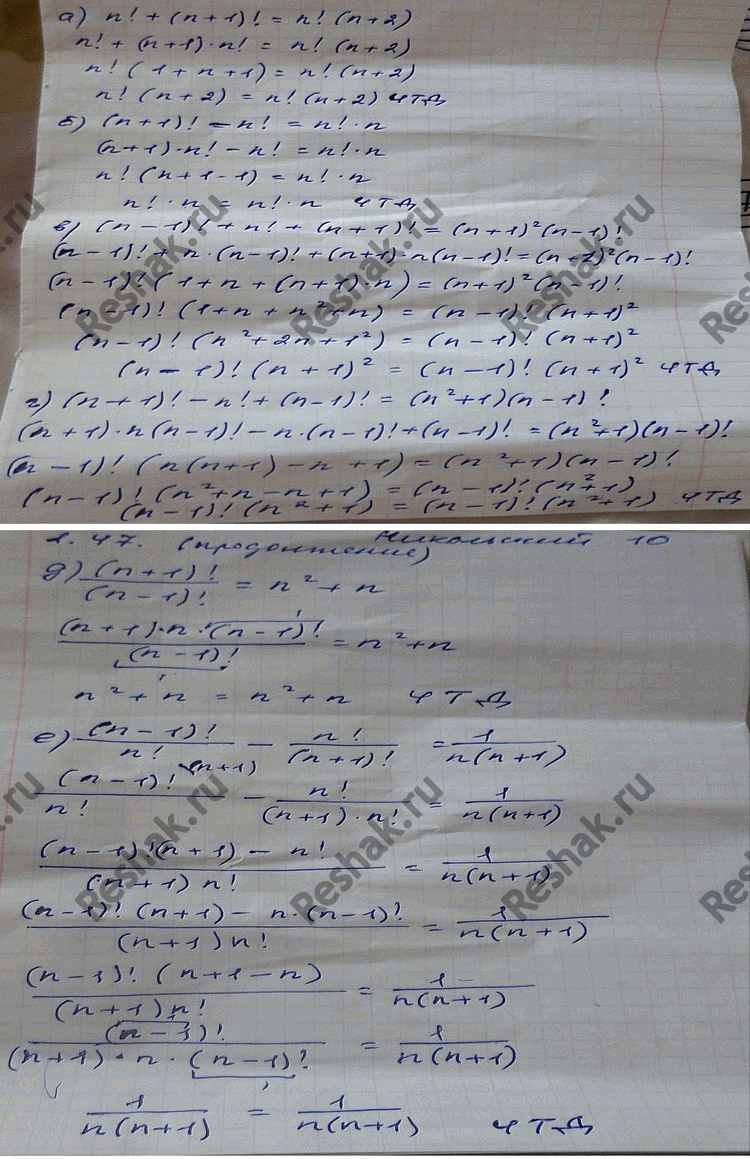 а) n! + (n+1)! = n! (n+2)
n! + (n+1)·n! = n! (n+2)
n! (1+n+1) = n! (n+2)
n! (n+2) = n! (n+2) чтд
б) (n+1)! - n! = n!·n
(n+1)·n! - n! = n!·n
n! (n+1-1) = n!·n
n!·n = n!·n чтд
в) (n-1)! + n! + (n+1)! = (n+1)² (n-1)!
(n-1)! + n·(n-1)! + (n+1)·n(n-1)! = (n+1)² (n-1)!
(n-1)! (1+n+(n+1)·n) = (n+1)² (n-1)!
(n-1)! (1+n+n²+n) = (n-1)! (n+1)²
(n-1)! (n²+2n+1²) = (n-1)! (n+1)²
(n-1)! (n+1)² = (n-1)! (n+1)² чтд
г) (n+1)! - n! + (n-1)! = (n²+1)(n-1)!
(n+1)·n(n-1)! - n·(n-1)! + (n-1)! = (n²+1)(n-1)!
(n-1)! (n(n+1)-n+1) = (n²+1)(n-1)!
(n-1)! (n²+n-n+1) = (n-1)! (n²+1)
(n-1)! (n²+1) = (n-1)! (n²+1) чтд
1.47. (продолжение) Никольский 10
д) (n+1)!/(n-1)! = n²+n
(n+1)·n·(n-1)!/(n-1)! = n²+n
n²+n = n²+n чтд
е) (n-1)!/n! - n!/(n+1)! = 1/n(n+1)
(n-1)! \(n+1)/n! - n!/(n+1)·n! = 1/n(n+1)
(n-1)!(n+1) - n!/(n+1)n! = 1/n(n+1)
(n-1)! (n+1) - n·(n-1)!/(n+1)n! = 1/n(n+1)
(n-1)! (n+1-n)/(n+1)n! = 1/n(n+1)
(n-1)!/(n+1)·n·(n-1)! = 1/n(n+1)
1/n(n+1) = 1/n(n+1) чтд
Reshak.ru
Reshak.ru
Reshak.ru
Reshak.ru